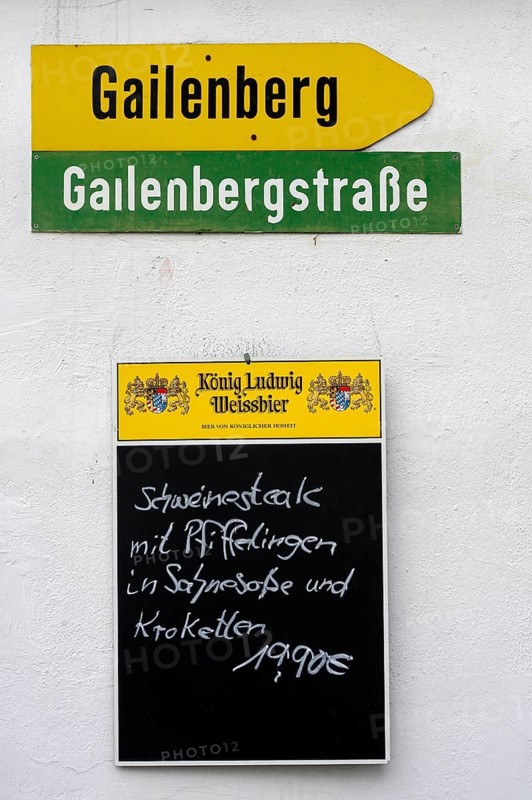 Gailenberg
Gailenbergstraße
König Ludwig
Weissbier
BIER VON KÖNIGLICHER HOHEIT
Schweinesteak
mit Pfifferlingen
in Sahnesoße und
Kroketten
19,90€
PHOTO12